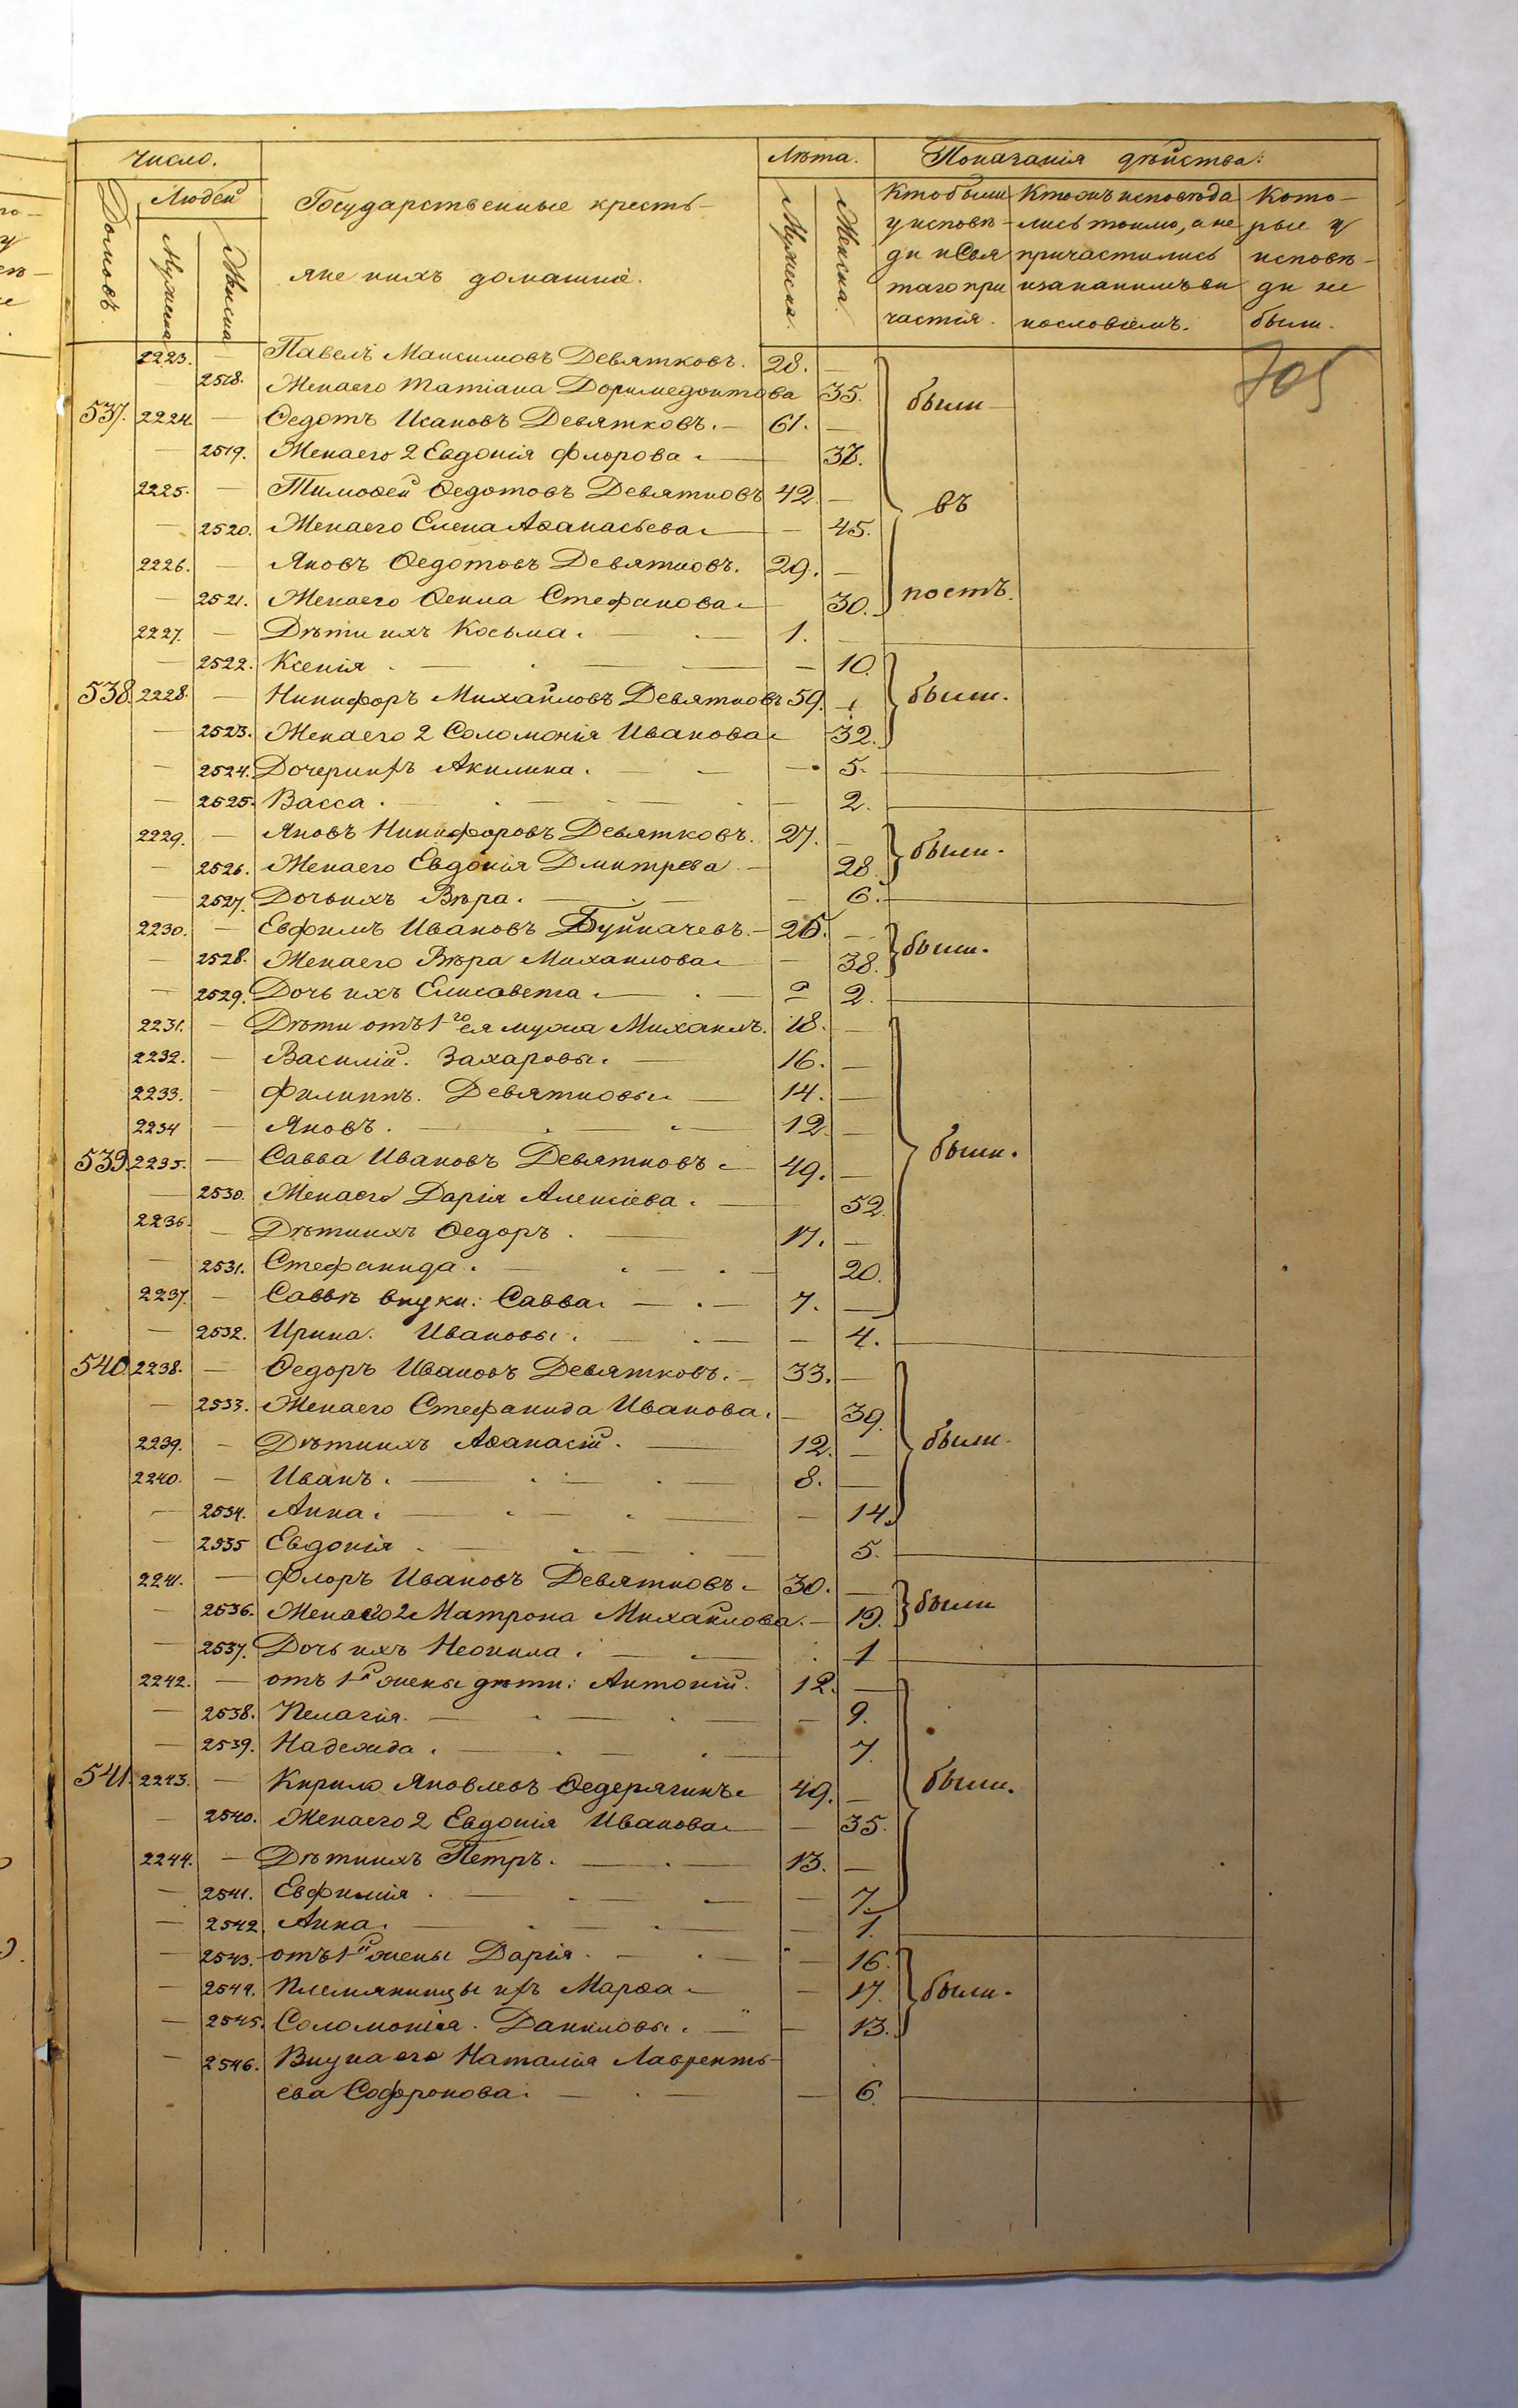 Число. Лѣта. Показанія дѣйства:
Домовъ. Людей Мужеска Женска Государственные кресть- Мужеска Женска. Кто были Кто жъ исповѣда Кото-
у исповѣ- лись токмо, а не рые у
яне и ихъ домашніе. ди и Свя причастились исповѣ-
таго при и за какимъ ви ди не
частія. нословіемъ. были.
705
2223. — Павелъ Максимовъ Девятковъ. 28. —
— 2518. Жена его Татіана Доримедонтова 35. были
537. 2224. — Ѳедотъ Исаковъ Девятковъ. — 61. —
— 2519. Жена его 2 Евдокія Флорова. —
2225. — Тимоѳей Ѳедотовъ Девятковъ 42. — въ
— 2520. Жена его Елена Аѳанасьева — 45.
2226. — Яковъ Ѳедотовъ Девятковъ. 29. —
— 2521. Жена его Ѳекла Стефанова 30. постъ.
2227. — Дѣти ихъ Косьма. — 1. —
— 2522. Ксенія. — — 10.
538. 2228. — Никифоръ Михайловъ Девятковъ 59. были.
— 2523. Жена его 2 Соломонія Иванова 32.
— 2524. Дочери ихъ Акилина. — 5.
— 2525. Васса. — — 2.
2229. — Яковъ Никифоровъ Девятковъ. 27. —
— 2526. Жена его Евдокія Дмитрева — 28. были.
— 2527. Дочь ихъ Вѣра. — 6.
2230. — Евфимъ Ивановъ — —
— 2528. Жена его Вѣра Михаилова — 38. были.
— 2529. Дочь ихъ Елисавета. — 2.
2231. — Дѣти отъ 1го ея мужа Михаилъ. 18. —
2232. — Василій. Захаровы. — 16. —
2233. — Филиппъ. Девятковы — 14. —
2234 — Яковъ. — 12. —
539. 2235. — Савва Ивановъ Девятковъ 49. — были.
— 2530. Жена его Дарія Алексіева. — 52.
2236. — Дѣти ихъ Ѳедоръ. — 17. —
— 2531. Стефанида. — 20.
2237. — Саввѣ внуки: Савва. — 7. —
— 2532. Ирина. Ивановы. — — 4.
540. 2238. — Ѳедоръ Ивановъ Девятковъ. — 33. —
— 2533. Жена его Стефанида Иванова. — 39.
2239. — Дѣти ихъ Аѳанасій. — 12. — были.
2240. — Иванъ. — 8. —
— 2534. Анна. — — 14.
— 2535 Евдокія. — 5.
2241. — Флоръ Ивановъ Девятковъ. 30. —
— 2536. Жена его 2 Матрона Михайлова. — 19. были
— 2537. Дочь ихъ Неонила. — 1
2242. — отъ 1й жены дѣти: Антоній. 12. —
— 2538. Пелагія. — — 9.
— 2539. Надежда. — 7.
541. 2243. — Кирилъ Яковлевъ Ѳедерягинъ 49. — были.
— 2540. Жена его 2 Евдокія Иванова — 35.
2244. — Дѣти ихъ Петръ. — 13. —
— 2541. Евфимія. — — 7.
— 2542. Анна. — — 1.
— 2543. отъ 1й жены Дарія. — — 16.
— 2544. Племянницы ихъ Марѳа — 17. были.
— 2545. Соломонія. Даниловы. — — 13.
— 2546. Внука его Наталія Лавренть-
ева Софронова. — — 6.